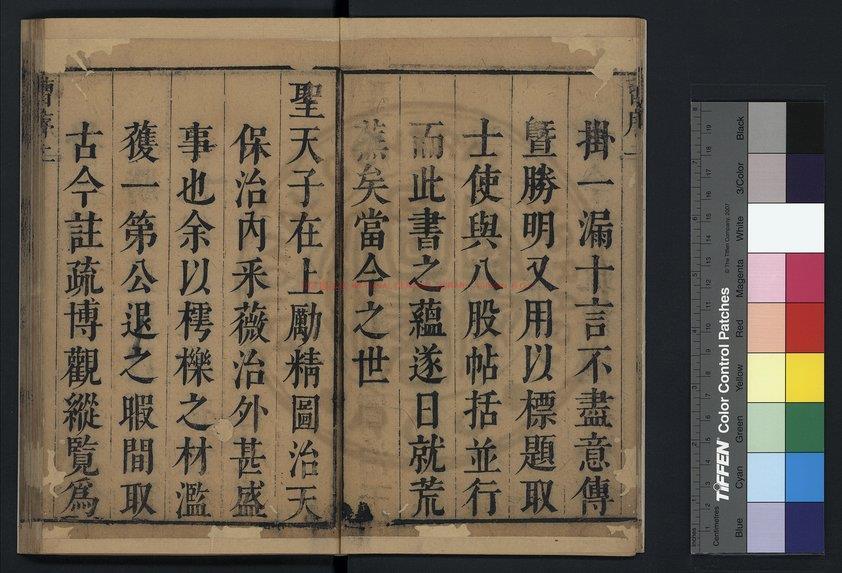 掛一漏十言不盡意傳
曁勝明又用以標題取
士使與八股帖括並行
而此書之蘊遂日就荒
蕪矣當今之世
聖天子在上勵精圖治天
保治內釆薇治外甚盛
事也余以樗櫟之材濫
獲一第公退之暇間取
古今註疏博觀縱覧爲
Black
3/Color
White
Magenta
Red
Yellow
Green
Cyan
Blue
TIFFEN Color Control Patches
© The Tiffen Company, 2007
Centimetres
Inches